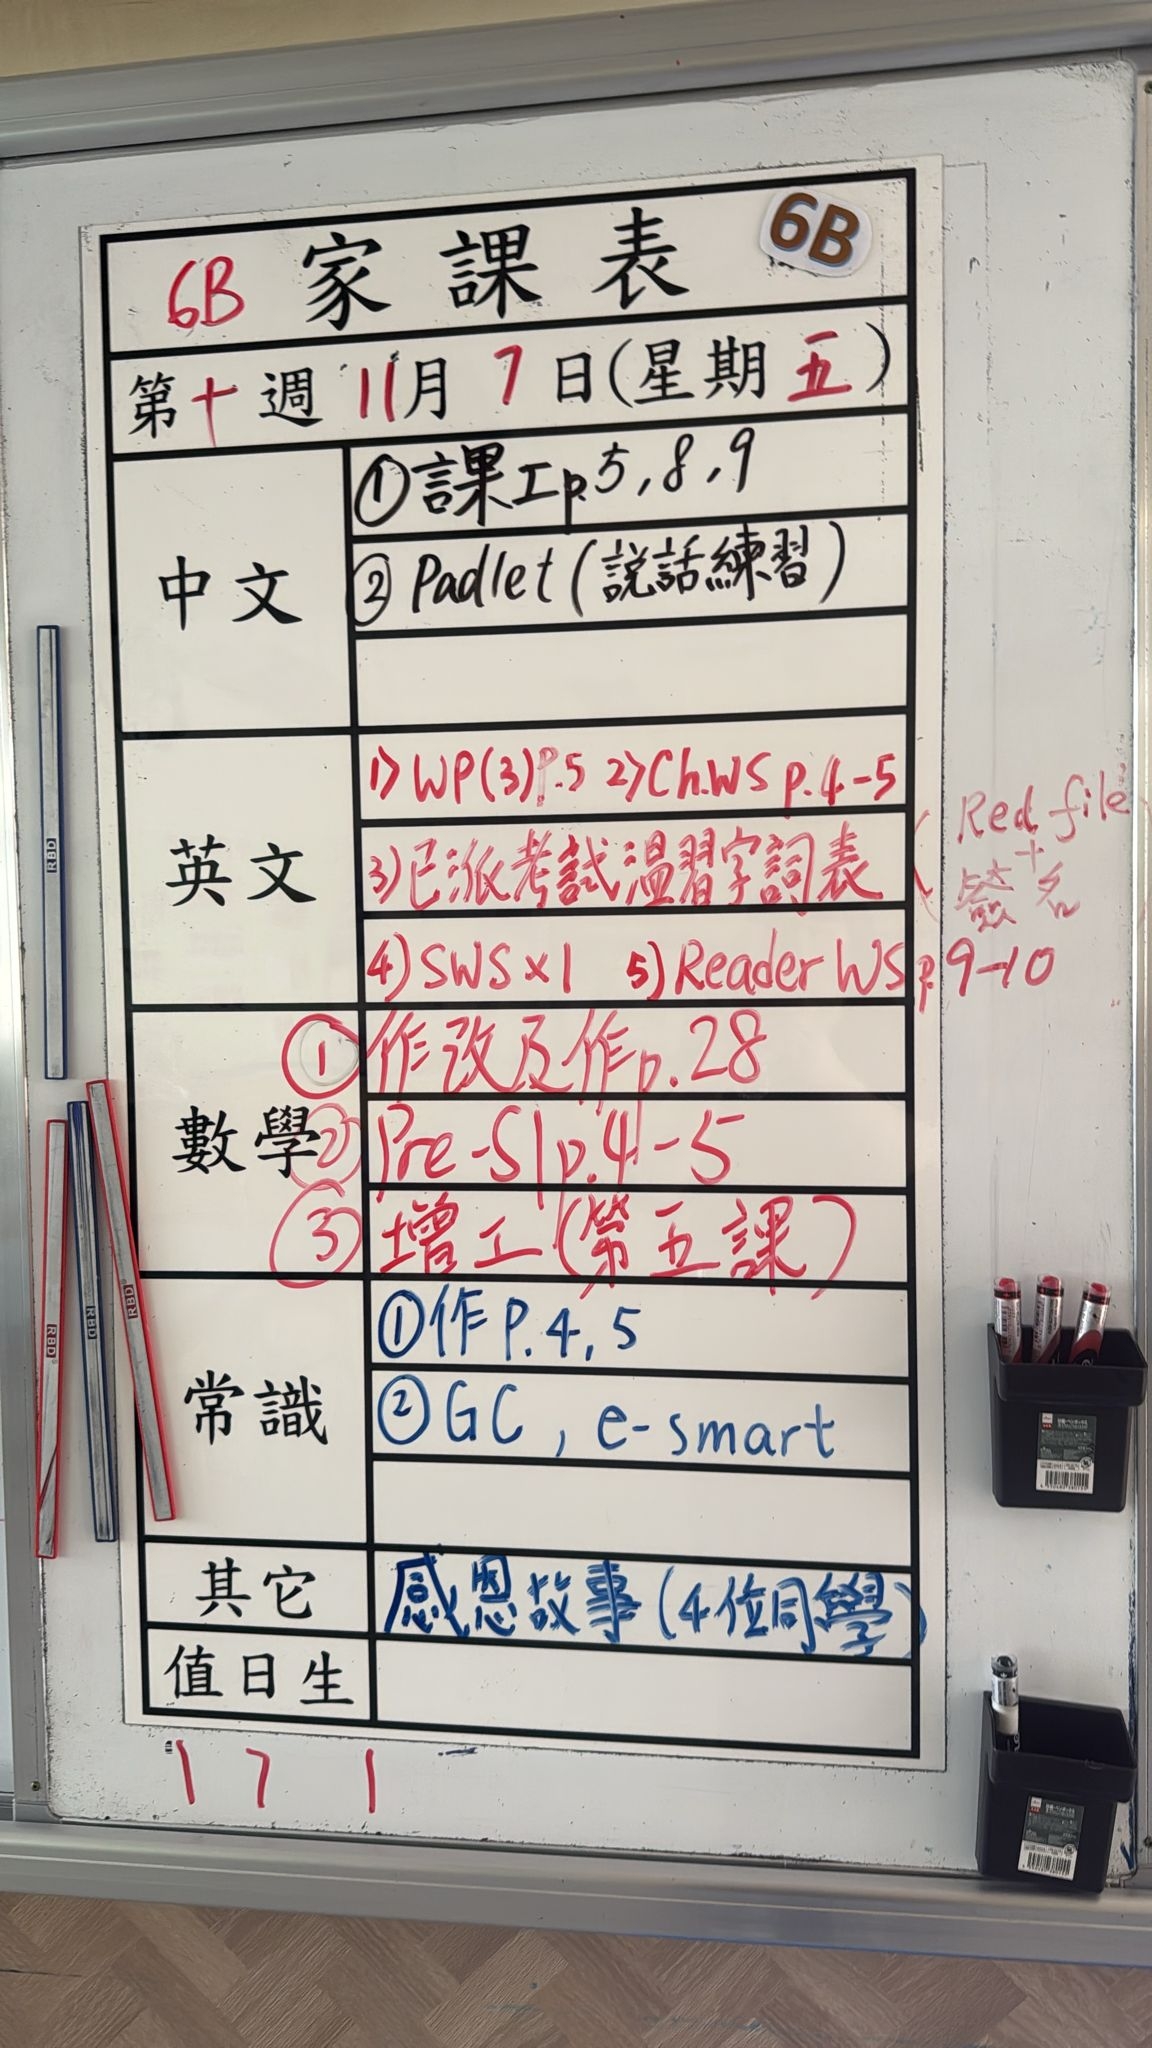 6B 家課表 6B
第十週 11月 7日(星期五)
中文
①課工p.5,8,9
②Padlet(說話練習)
英文
1)WP(3)P.5 2)Ch.WS p.4-5
3)已派考試溫習字詞表 (Red file + 簽名
4)SWS×1 5)Reader WS p.9-10
數學
①作改及作p.28
②Pre-S1p.4-5
③增工(第五課)
常識
①作P.4,5
②GC, e-smart
其它
感恩故事(4位同學)
值日生
1 7 1
RBD
RBD
RBD
RBD